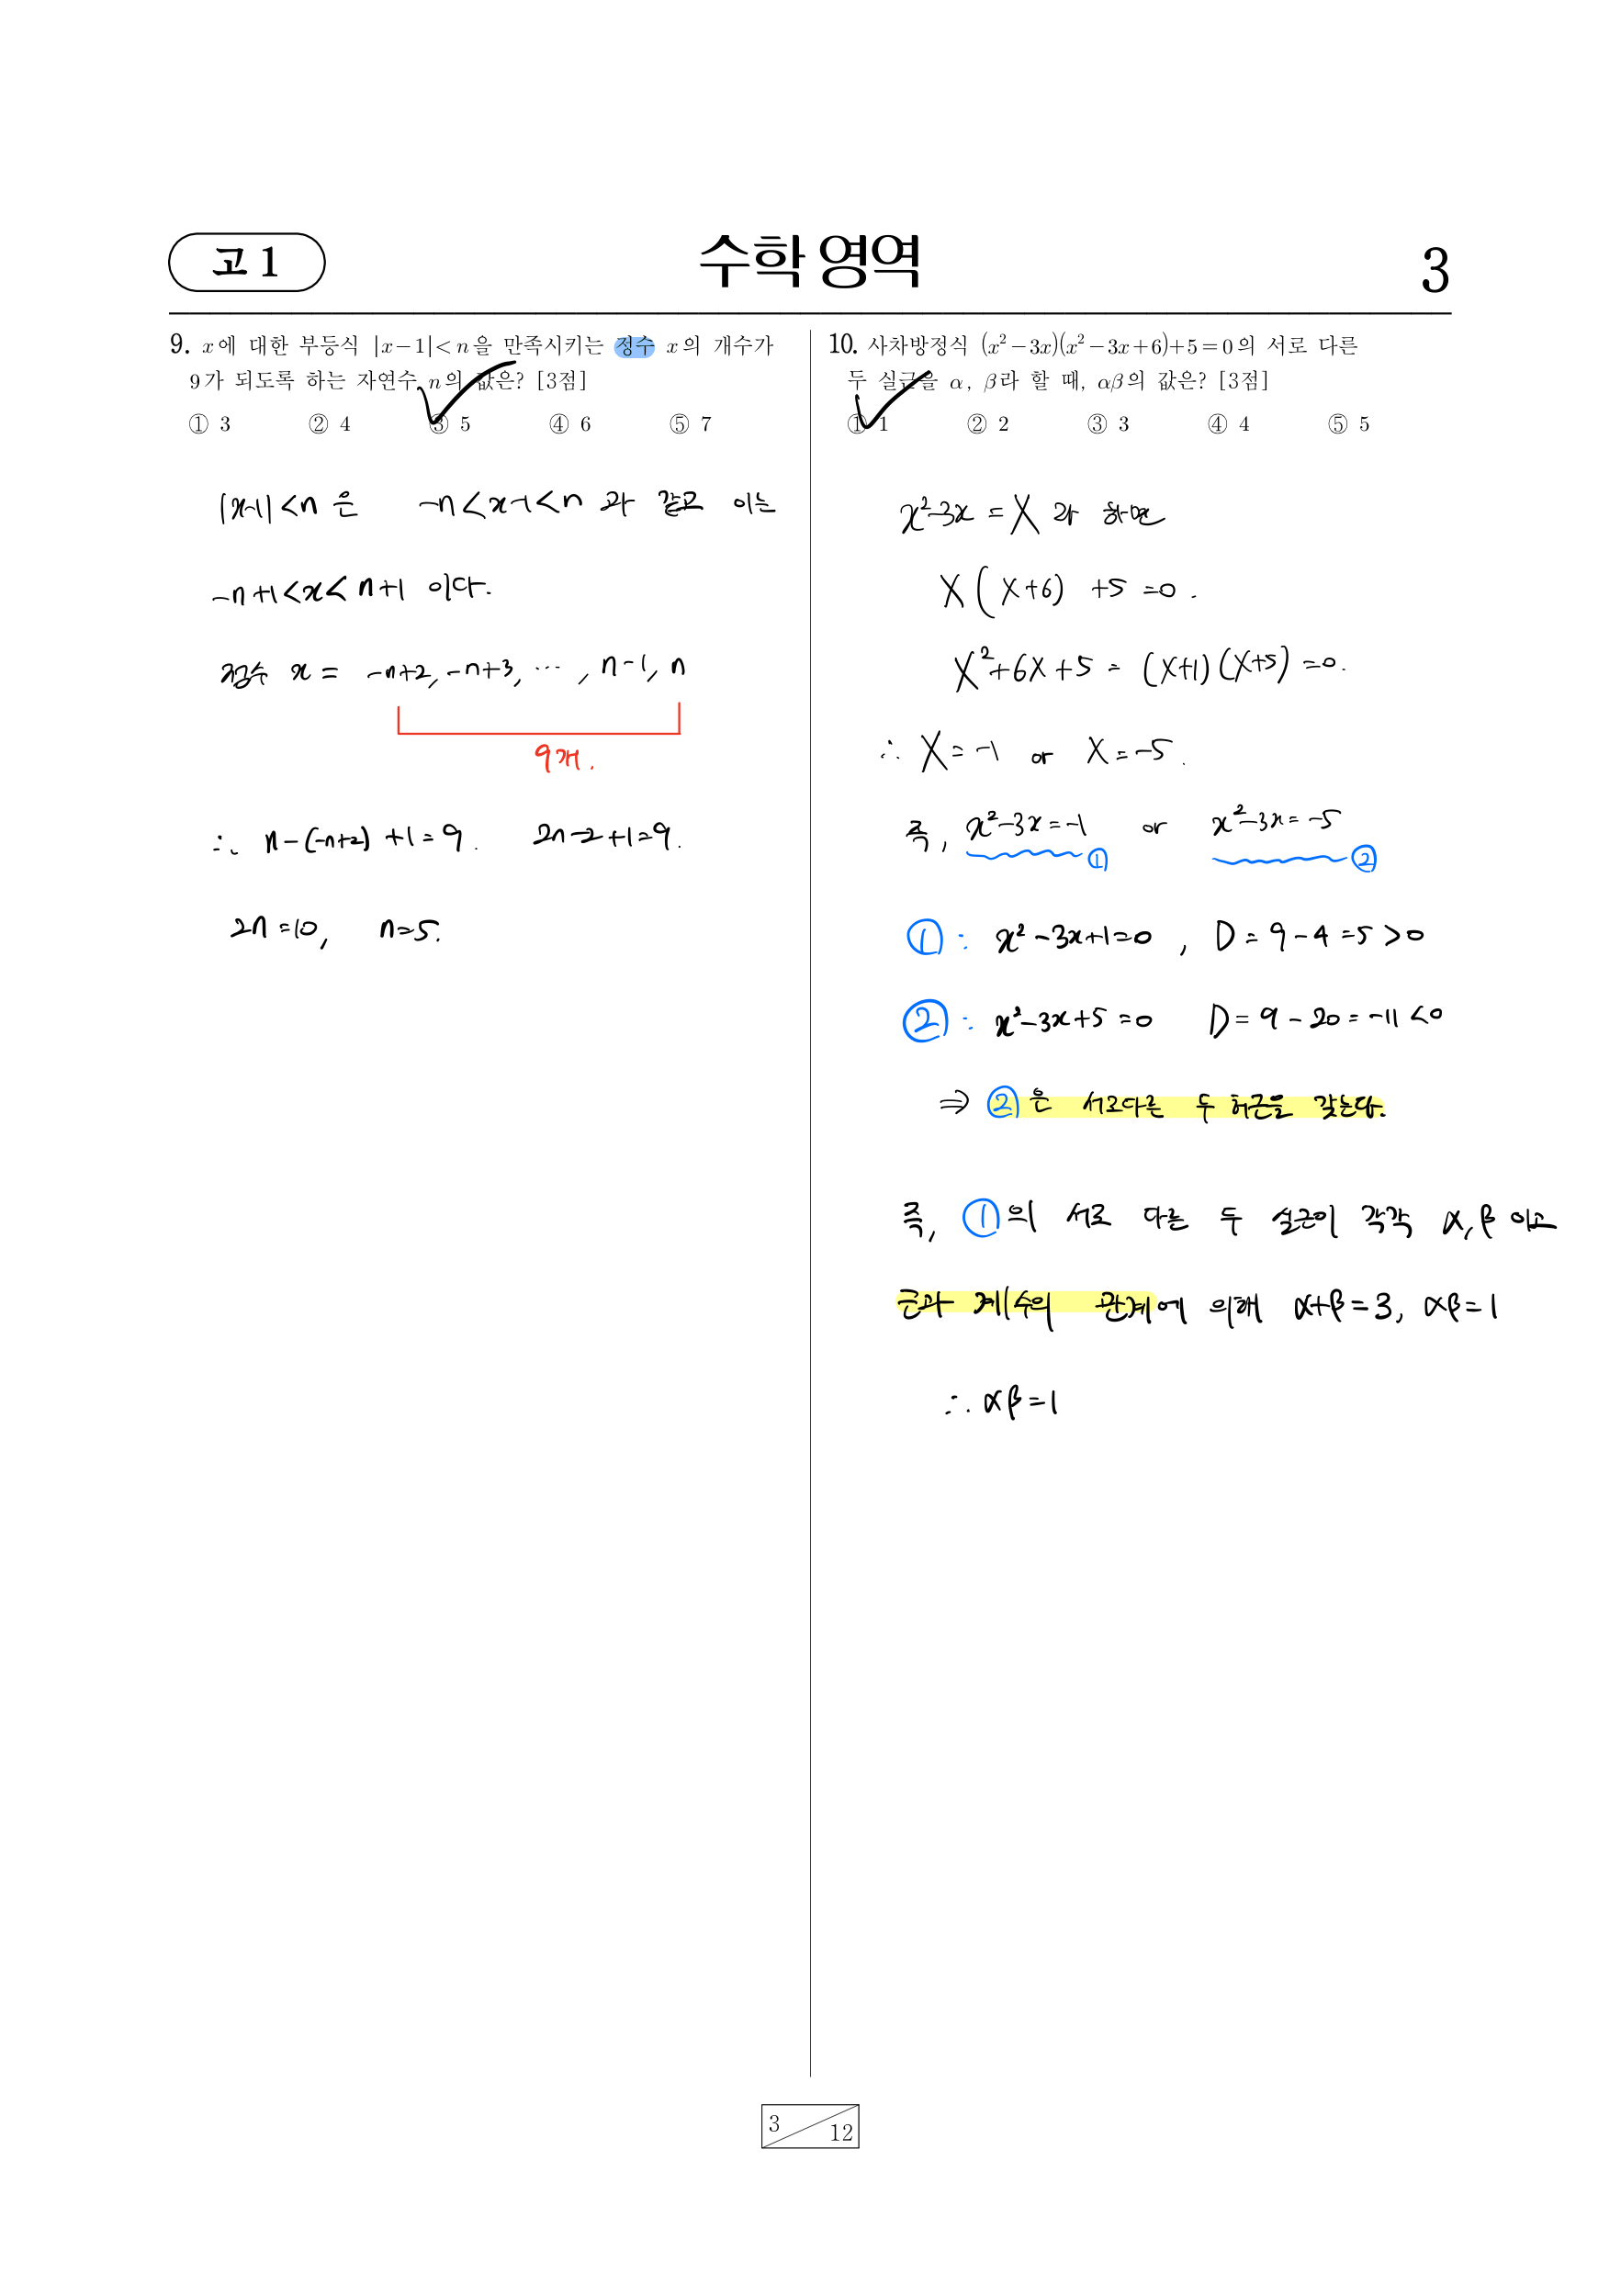 고 1
수학 영역
3
9. x에 대한 부등식 |x-1|<n을 만족시키는 정수 x의 개수가
9가 되도록 하는 자연수 n의 값은? [3점]
① 3 ② 4 ③ 5 ④ 6 ⑤ 7
|x-1|<n 은 -n<x-1<n 과 같고 이는
-n+1<x<n+1 이다.
정수 x = -n+2, -n+3, ⋯, n-1, n
9개.
∴ n-(-n+2)+1=9. 2n-2+1=9.
2n=10, n=5.
10. 사차방정식 (x²-3x)(x²-3x+6)+5=0의 서로 다른
두 실근을 α, β라 할 때, αβ의 값은? [3점]
① 1 ② 2 ③ 3 ④ 4 ⑤ 5
x²-3x=X 라 하면
X(X+6)+5=0.
X²+6X+5=(X+1)(X+5)=0.
∴ X=-1 or X=-5.
즉, x²-3x=-1 ① or x²-3x=-5 ②
① : x²-3x+1=0, D=9-4=5>0
② : x²-3x+5=0 D=9-20=-11<0
⇒ ②은 서로다른 두 허근을 갖는다.
즉, ①의 서로 다른 두 실근이 각각 α, β 이고
근과 계수의 관계에 의해 α+β=3, αβ=1
∴ αβ=1
3 12